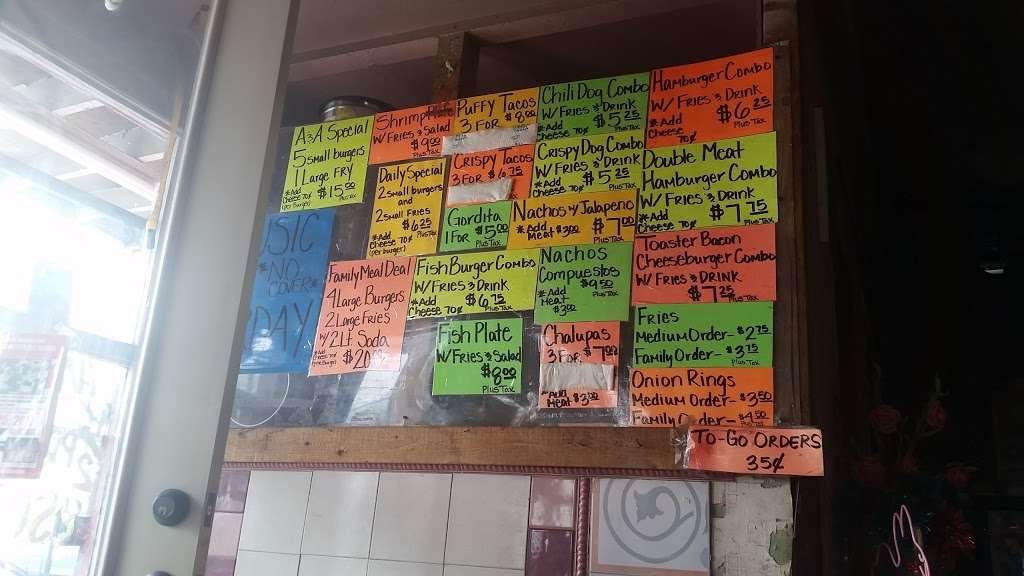 A&A Special
5 Small burgers
1 Large FRY
*Add
Cheese 70¢
(per Burger)
$15.00
Shrimp Plate
W/Fries & Salad
$9.00
Plus Tax
Puffy Tacos
3 FOR $8.00
Chili Dog Combo
W/Fries & Drink
*Add
Cheese 70¢
$5.25
Plus Tax
Hamburger Combo
W/ Fries & Drink
*Add
Cheese
70¢
$6.25
Plus Tax
Daily Special
2 Small burgers
and
2 Small Fries
*Add
Cheese 70¢
(per burger)
$6.25
Crispy Tacos
3 FOR $6.75
Crispy Dog Combo
W/ Fries & Drink
*Add
Cheese 70¢
$5.25
Plus Tax
Double Meat
Hamburger Combo
W/ Fries & Drink
*Add
Cheese 70¢
$7.75
Plus Tax
Gordita
1 For $5.00
Plus Tax
Nachos w/ Jalapeno
*Add
Meat $3.00
$7.00
Plus Tax
USIC
*NO
COVER*
DAY
Family Meal Deal
4 Large Burgers
2 Large Fries
w/ 2 Lt Soda
$20.00
Fish Burger Combo
W/ Fries & Drink
*Add
Cheese 70¢
$6.75
Plus Tax
Nachos
Compuestos
*Add
Meat
$3.00
$9.50
Plus Tax
Toaster Bacon
Cheeseburger Combo
W/ Fries & Drink
$7.25
Plus Tax
Fish Plate
W/ Fries & Salad
$8.00
Plus Tax
Chalupas
3 For $7.00
*Add
Meat $3.00
Fries
Medium Order- $2.75
Family Order- $3.75
Plus Tax
Onion Rings
Medium Order- $3.50
Family Order- $4.50
To-Go Orders
35¢